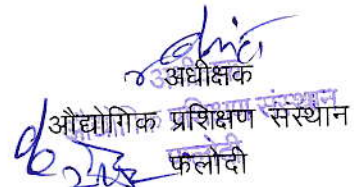 अधीक्षक
औद्योगिक प्रशिक्षण संस्थान
फलोदी